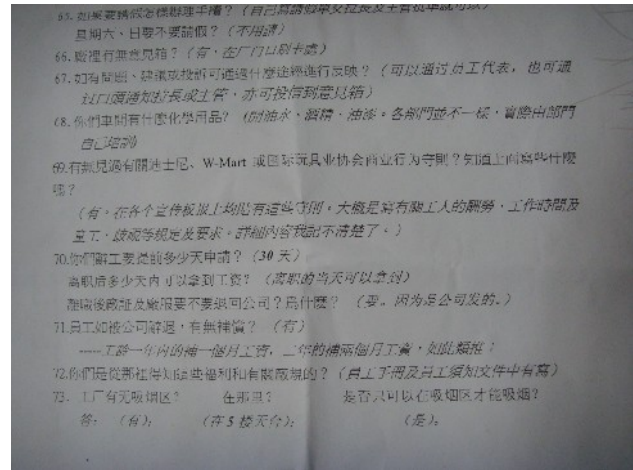 65. 如果要請假怎樣辦理手續？（自己寫請假單交拉長及主管批準就可以）
星期六、日要不要請假？（不用請）
66. 廠裡有無意見箱？（有，在厂门口刷卡處）
67. 如有問題、建議或投訴可通過什麼途徑進行反映？（可以通过员工代表，也可通
过口頭通知拉長或主管，亦可投信到意見箱）
68. 你們車間有什麼化學用品？（開油水、酒精、油漆。各部門並不一樣，實際由部門
自己培訓）
69.有無見過有關迪士尼、W-Mart 或国际玩具业协会商业行为守則？知道上面寫些什麼
嗎？
（有。在各个宣传板报上均貼有這些守則。大概是寫有關工人的酬勞、工作時間及
童工、歧視等規定及要求。詳細內容我記不清楚了。）
70.你們辭工要提前多少天申請？（30 天）
离职后多少天内可以拿到工資？（离职的当天可以拿到）
離職後廠証及廠服要不要退回公司？爲什麼？（要。因为是公司发的。）
71.員工如被公司辭退，有無補償？（有）
-----工齡一年内的補一個月工資，二年的補兩個月工資，如此類推；
72.你們是從那裡得知這些福利和有關廠規的？（員工手冊及員工須知文件中有寫）
73. 工厂有无吸烟区？ 在那里？ 是否只可以在吸烟区才能吸烟？
答：（有）； （在 5 楼天台）； （是）；